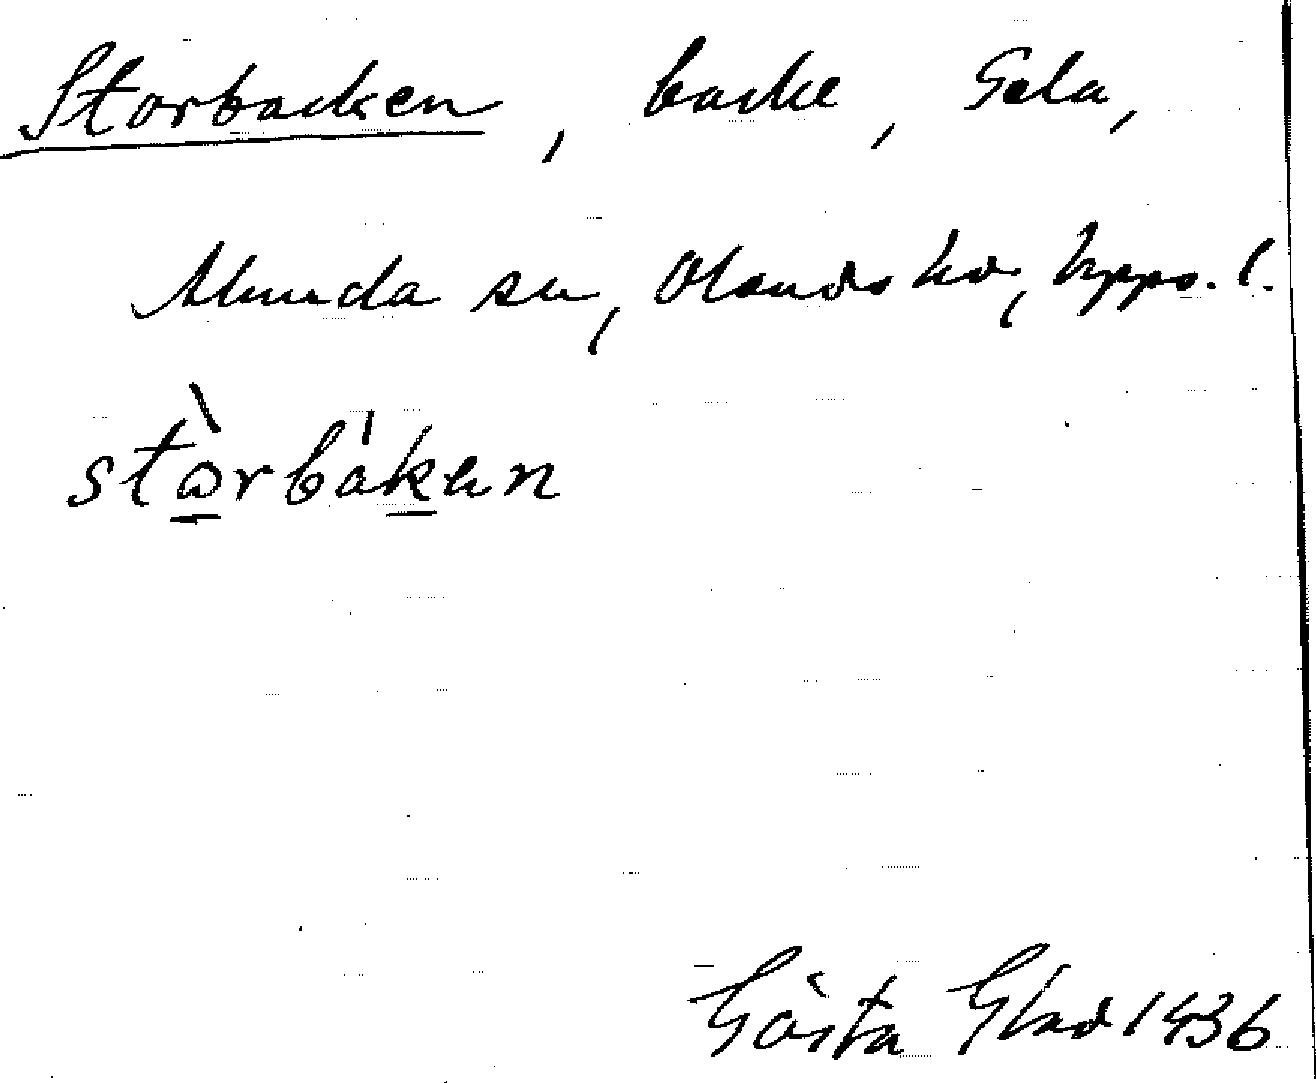 Storbacken, backe, Gela,
Alunda sn, Olands hd, Upps. l.
stòrbákan
Gösta Glad 1936